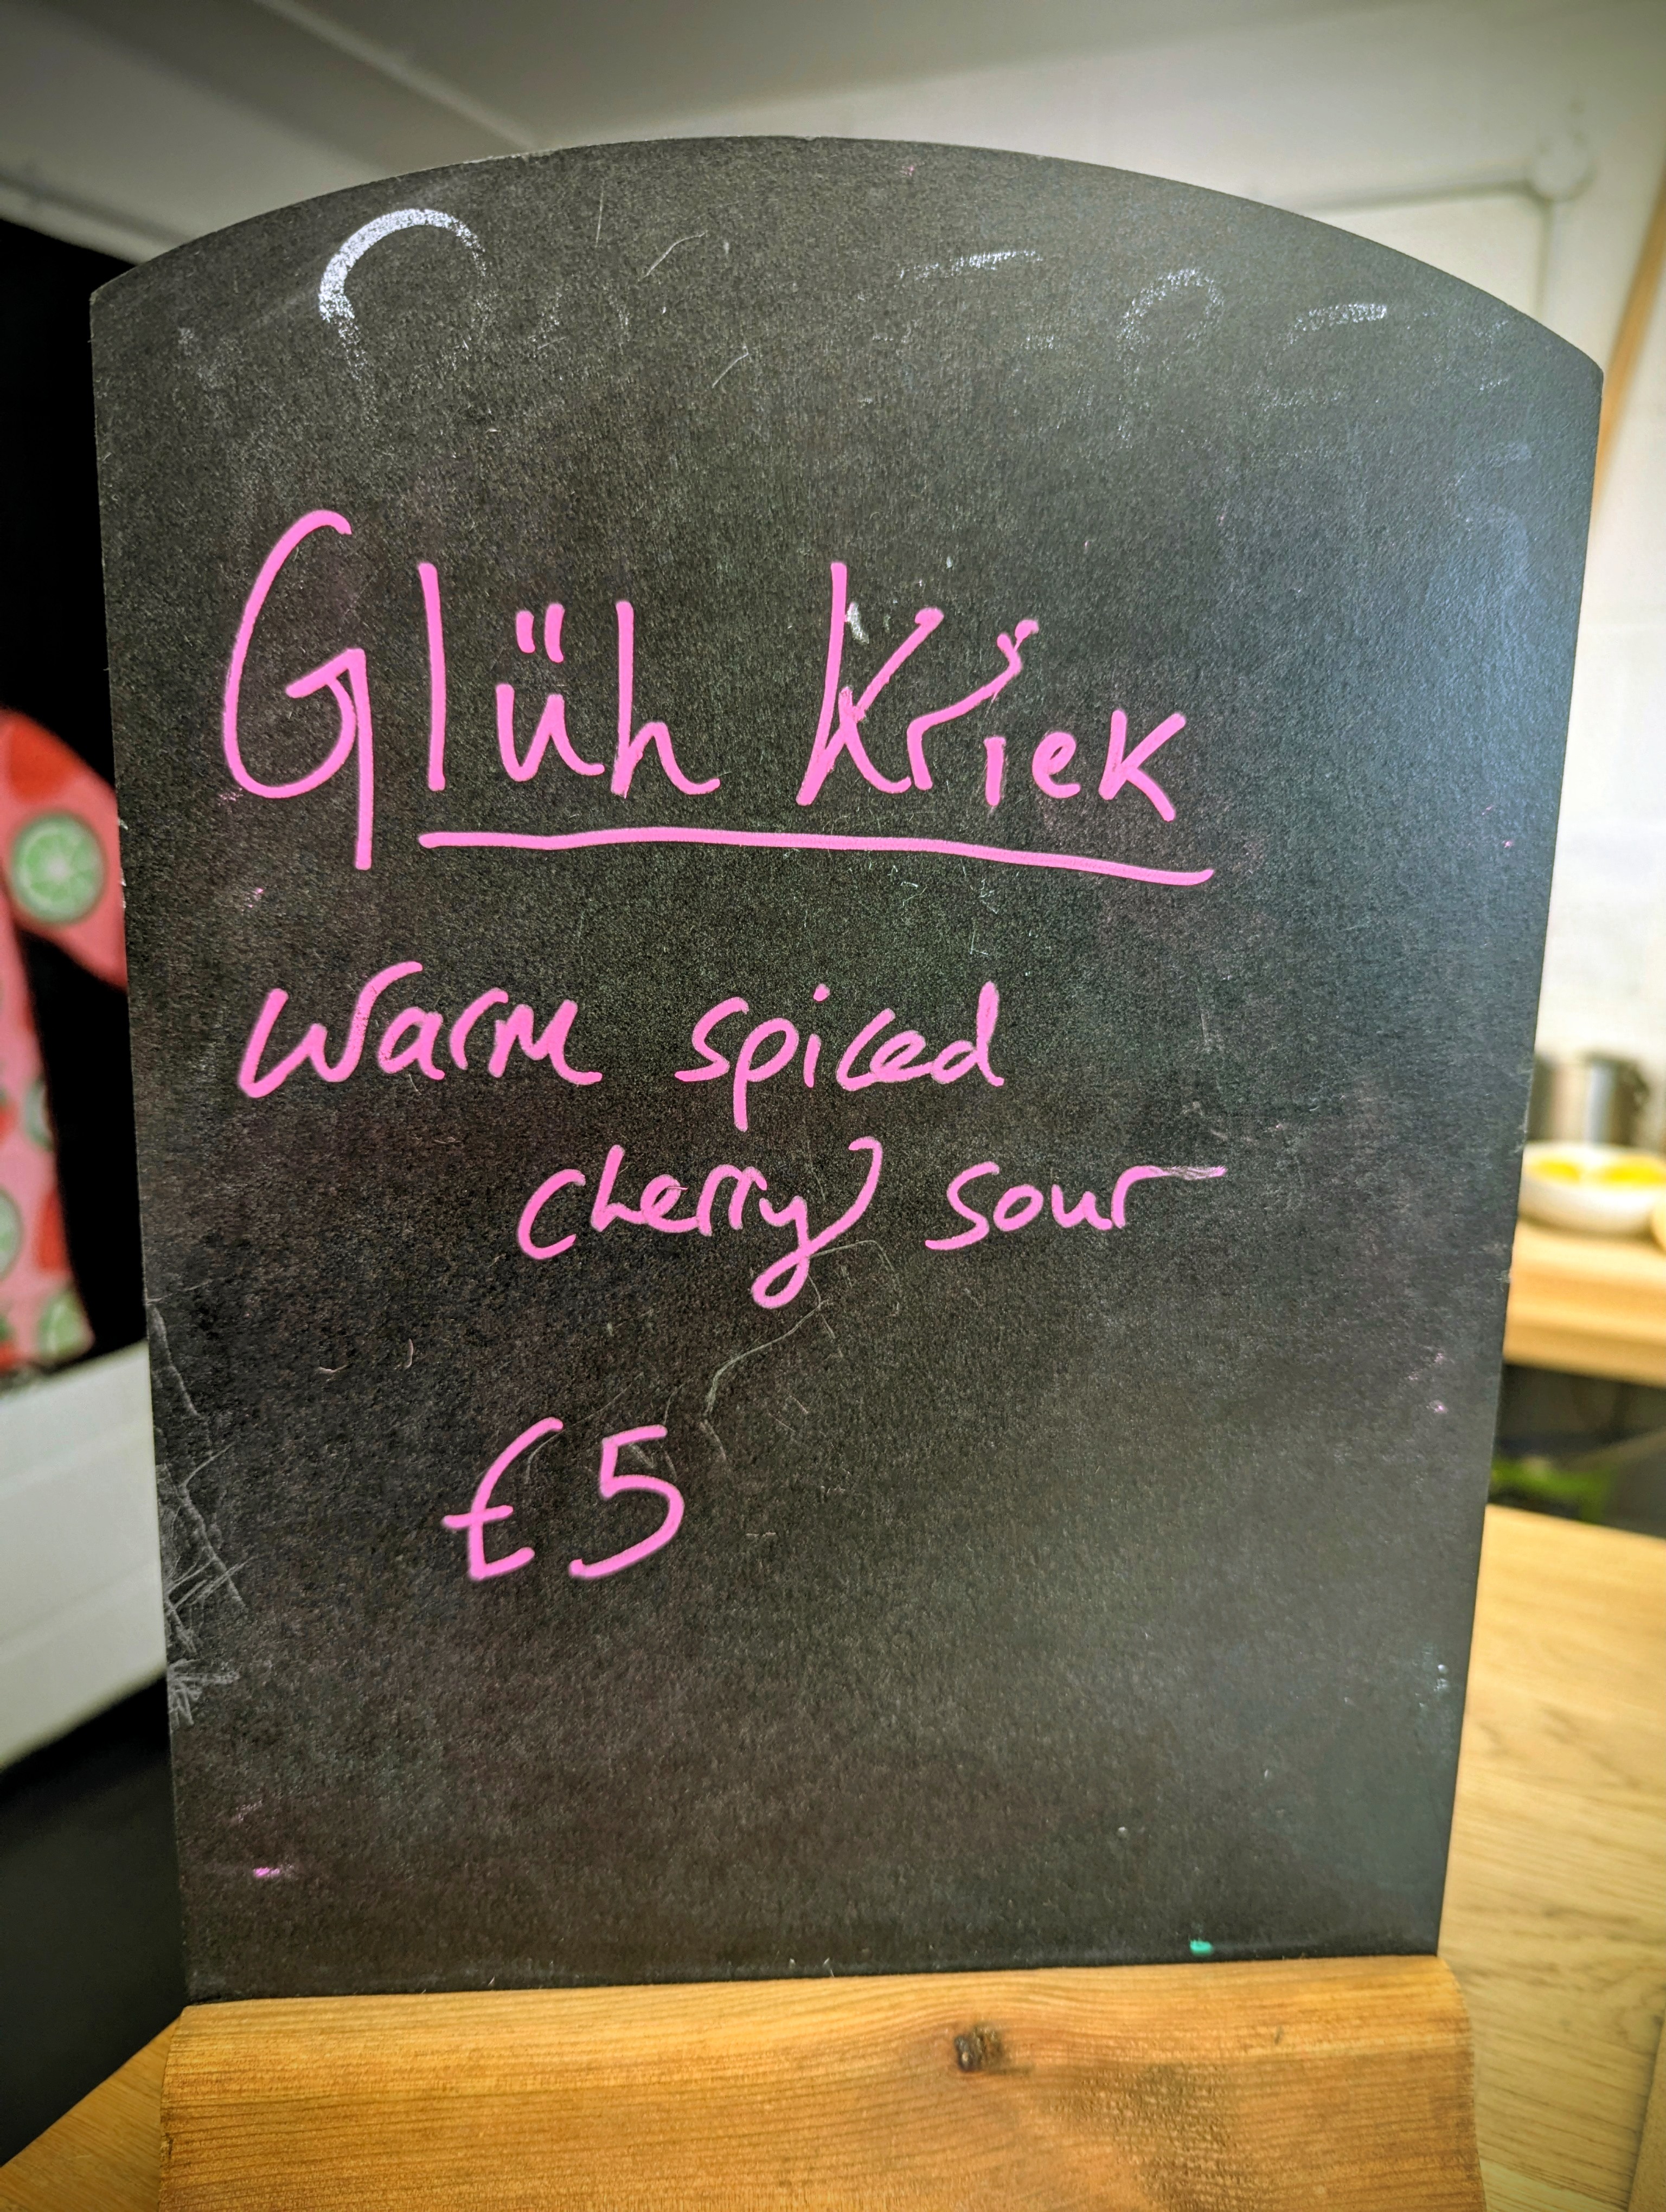 Glüh Kriek
Warm spiced
cherry sour
£5